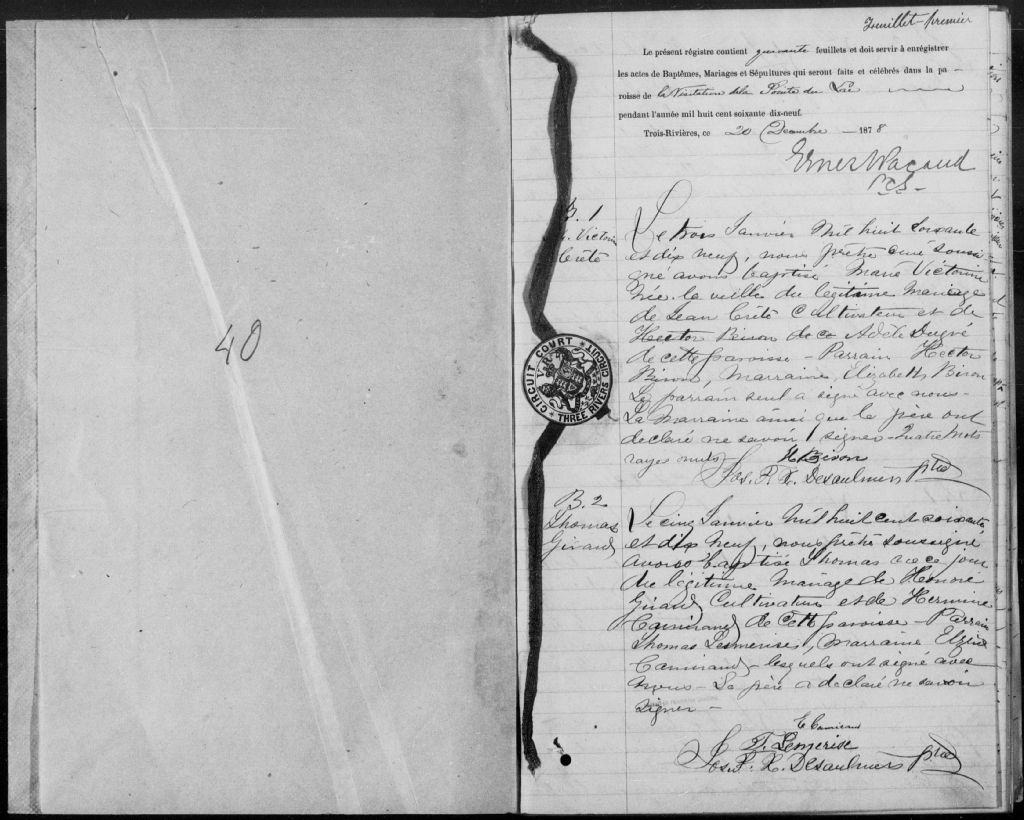 40
Feuillet premier
Le présent régistre contient quarante feuillets et doit servir à enrégistrer
les actes de Baptêmes, Mariages et Sépultures qui seront faits et célébrés dans la pa-
roisse de la Visitation de la Pointe du Lac
pendant l'année mil huit cent soixante dix-neuf.
Trois-Rivières, ce 20 Decembre 1878
B. 1
M. Victorine
Crête
Le trois Janvier Mil huit soixante
et dix neuf, nous prêtre curé soussi
gné avons baptisé Marie Victorine
Née la veille du légitime Mariage
de Jean Crête Cultivateur et de
Hector Biron de ce Adèle Dugré
de cette paroisse - Parrain Hector
Biron, Marraine, Elizabeth Biron
Le parrain seul a signé avec nous -
La Marraine ainsi que le père ont
declaré ne savoir signer - Quatre Mots
rayes nuls
H Biron
Jos. F. X. Desaulniers ptre
CIRCUIT COURT
V R
CIRCUIT THREE RIVERS
B. 2
Thomas
Girard
Le cinq Janvier Mil huit cent soixante
et dix Neuf, nous prêtre soussigné
avons baptisé Thomas né ce jour
du légitime Mariage de Honoré
Girard Cultivateur et de Hermine
Camirand de cette paroisse - Parrain
Thomas Lesmerises, Marraine
Camirand - lesquels ont signé avec
Nous - Le père a declaré ne savoir
signer -
E Camirand
T. Lemerise
Jos. F. X. Desaulniers ptre